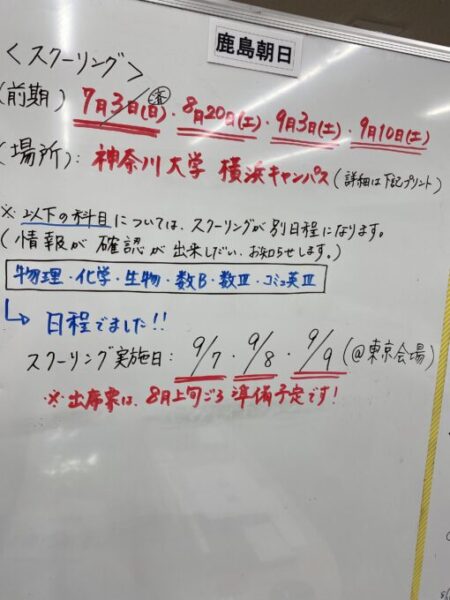 鹿島朝日
<スクーリング>
(前期) 7月3日(日)・8月20日(土)・9月3日(土)・9月10日(土)
(場所): 神奈川大学 横浜キャンパス(詳細は下記プリント)
※以下の科目については、スクーリングが別日程になります。
(情報が確認が出来しだい、お知らせします。)
物理・化学・生物・数B・数Ⅲ・コミュ英Ⅲ
↳ 日程でました!!
スクーリング実施日: 9/7・9/8・9/9(@東京会場)
※出席票は、8月上旬ごろ準備予定です!